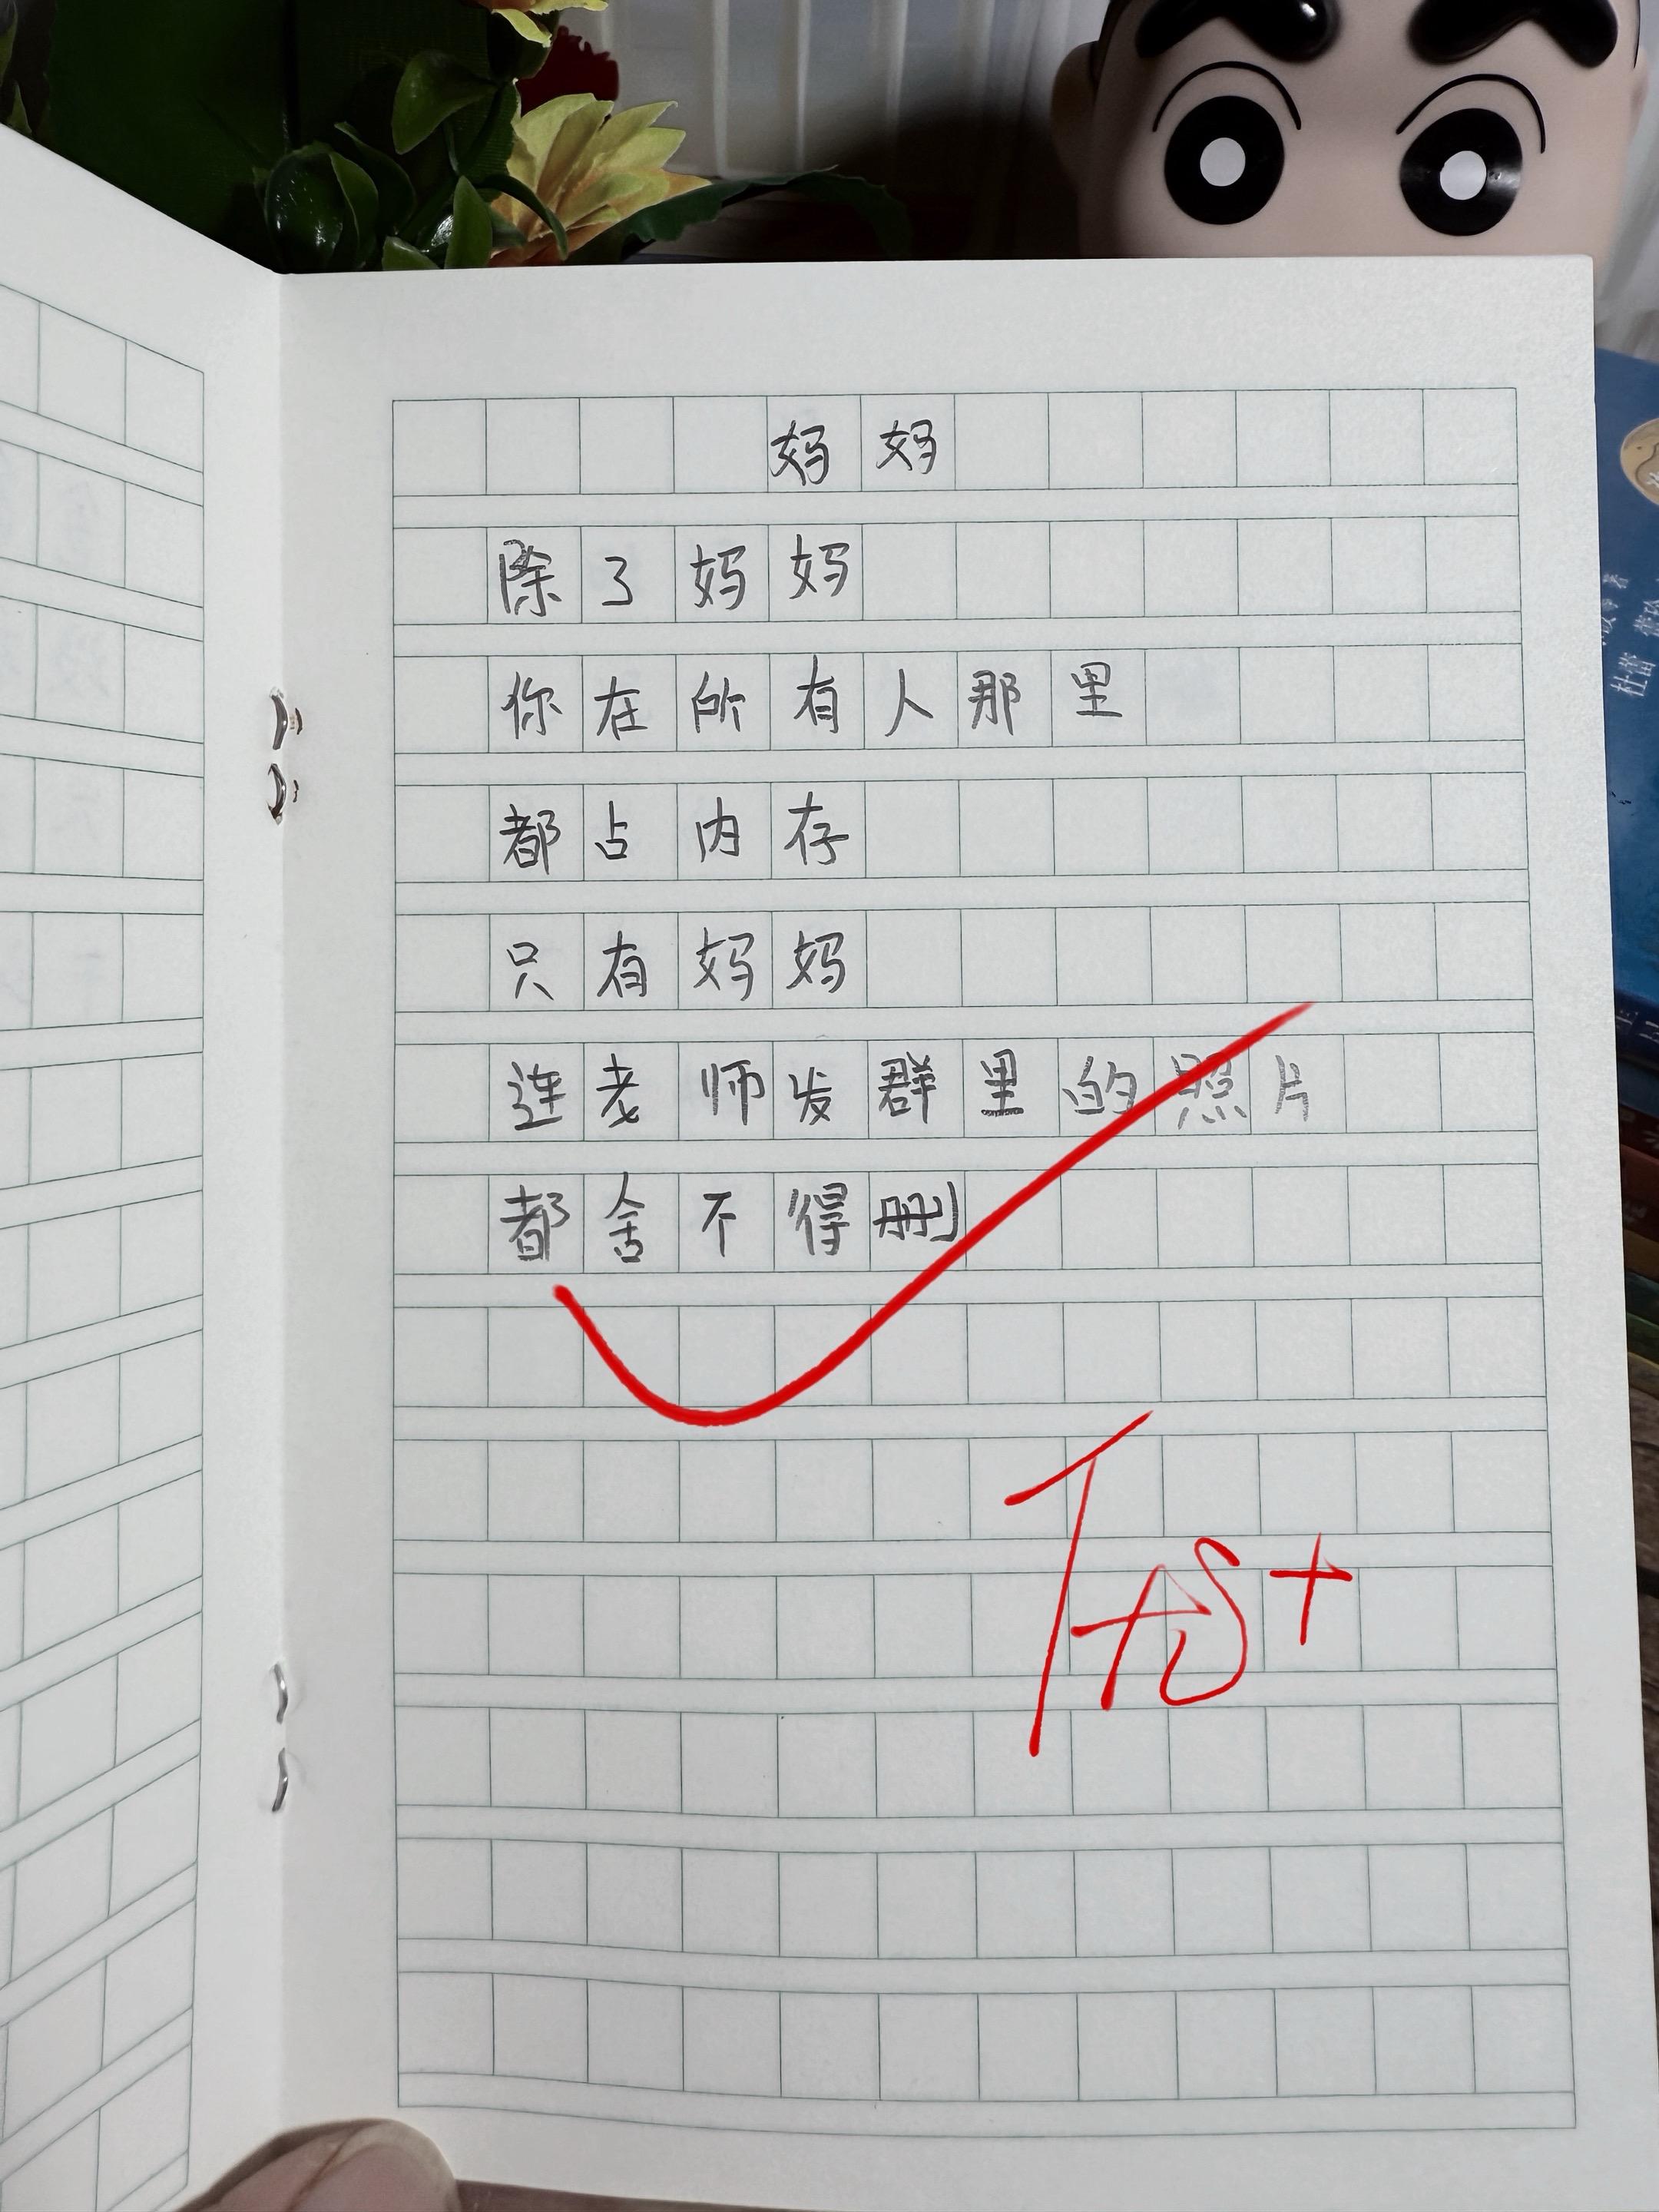 妈妈
除了妈妈
你在所有人那里
都占内存
只有妈妈
连老师发群里的照片
都舍不得删
杜蕾